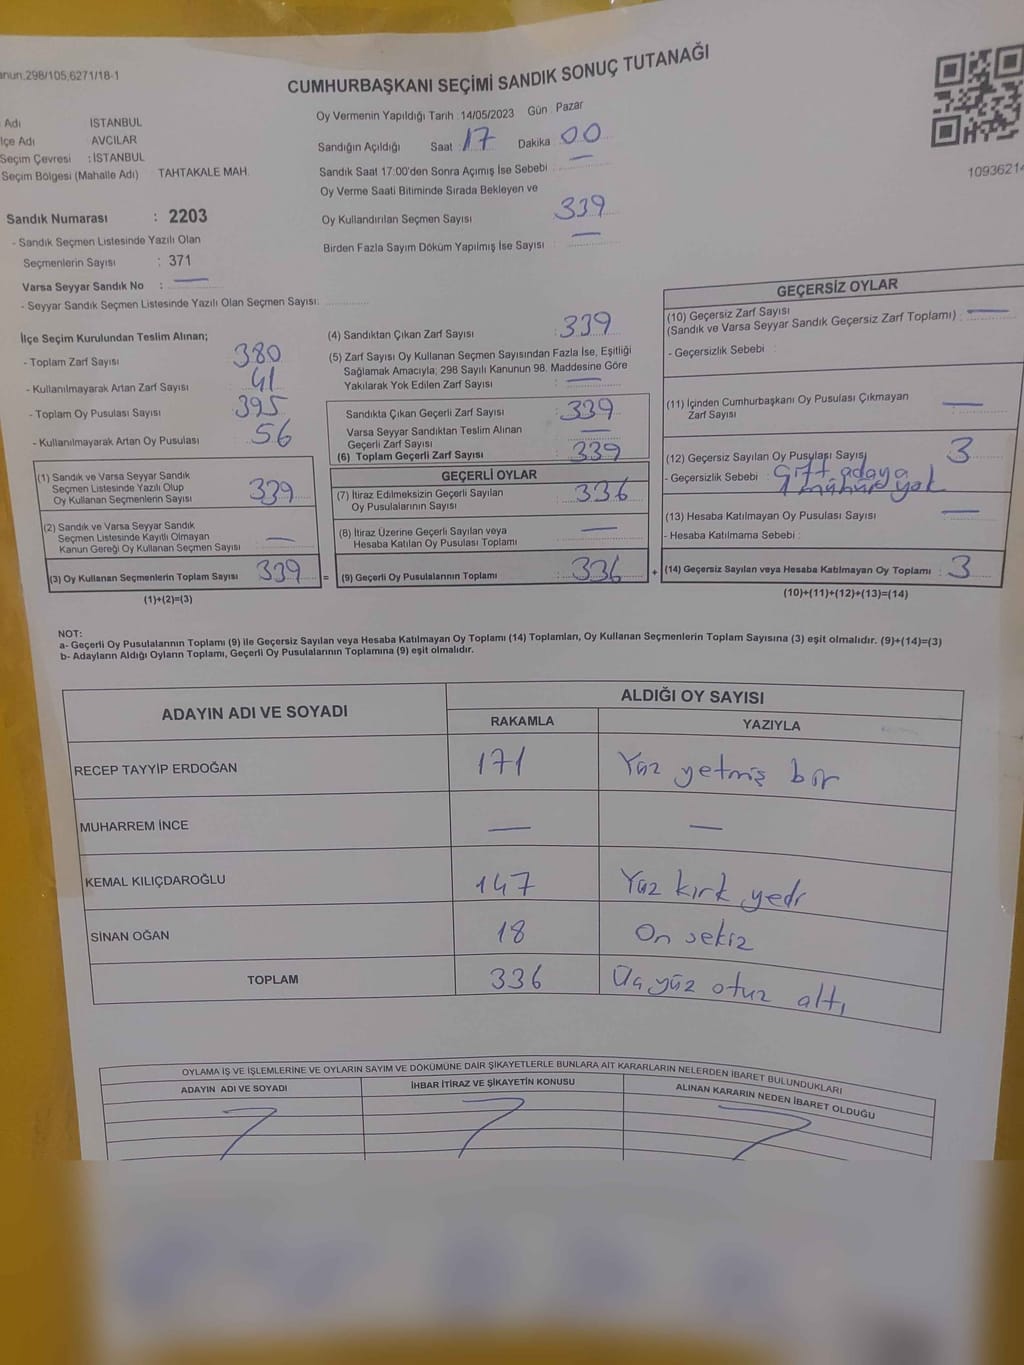 anun.298/105,6271/18-1
CUMHURBAŞKANI SEÇİMİ SANDIK SONUÇ TUTANAĞI
Adı İSTANBUL
lçe Adı AVCILAR
Seçim Çevresi : İSTANBUL
Seçim Bölgesi (Mahalle Adı) TAHTAKALE MAH.
Sandık Numarası : 2203
- Sandık Seçmen Listesinde Yazılı Olan
Seçmenlerin Sayısı : 371
Varsa Seyyar Sandık No : —
- Seyyar Sandık Seçmen Listesinde Yazılı Olan Seçmen Sayısı:
Oy Vermenin Yapıldığı Tarih : 14/05/2023 Gün : Pazar
Sandığın Açıldığı Saat : 17 Dakika : 00
Sandık Saat 17:00'den Sonra Açımış İse Sebebi : —
Oy Verme Saati Bitiminde Sırada Bekleyen ve
Oy Kullandırılan Seçmen Sayısı 339
Birden Fazla Sayım Döküm Yapılmış İse Sayısı : —
1093621
İlçe Seçim Kurulundan Teslim Alınan;
- Toplam Zarf Sayısı 380
- Kullanılmayarak Artan Zarf Sayısı 41
- Toplam Oy Pusulası Sayısı 395
- Kullanılmayarak Artan Oy Pusulası : 56
(1) Sandık ve Varsa Seyyar Sandık
Seçmen Listesinde Yazılı Olup
Oy Kullanan Seçmenlerin Sayısı 339
(2) Sandık ve Varsa Seyyar Sandık
Seçmen Listesinde Kayıtlı Olmayan
Kanun Gereği Oy Kullanan Seçmen Sayısı —
(3) Oy Kullanan Seçmenlerin Toplam Sayısı 339 =
(1)+(2)=(3)
(4) Sandıktan Çıkan Zarf Sayısı : 339
(5) Zarf Sayısı Oy Kullanan Seçmen Sayısından Fazla İse, Eşitliği
Sağlamak Amacıyla; 298 Sayılı Kanunun 98. Maddesine Göre
Yakılarak Yok Edilen Zarf Sayısı : —
Sandıkta Çıkan Geçerli Zarf Sayısı : 339
Varsa Seyyar Sandıktan Teslim Alınan
Geçerli Zarf Sayısı —
(6) Toplam Geçerli Zarf Sayısı 339
GEÇERLİ OYLAR
(7) İtiraz Edilmeksizin Geçerli Sayılan
Oy Pusulalarının Sayısı : 336
(8) İtiraz Üzerine Geçerli Sayılan veya
Hesaba Katılan Oy Pusulası Toplamı —
(9) Geçerli Oy Pusulalarının Toplamı : 336 +
GEÇERSİZ OYLAR
(10) Geçersiz Zarf Sayısı
(Sandık ve Varsa Seyyar Sandık Geçersiz Zarf Toplamı) : —
- Geçersizlik Sebebi :
(11) İçinden Cumhurbaşkanı Oy Pusulası Çıkmayan
Zarf Sayısı —
(12) Geçersiz Sayılan Oy Pusulası Sayısı 3
- Geçersizlik Sebebi : Çift adaya
mühür yok
(13) Hesaba Katılmayan Oy Pusulası Sayısı —
- Hesaba Katılmama Sebebi :
(14) Geçersiz Sayılan veya Hesaba Katılmayan Oy Toplamı : 3
(10)+(11)+(12)+(13)=(14)
NOT:
a- Geçerli Oy Pusulalarının Toplamı (9) ile Geçersiz Sayılan veya Hesaba Katılmayan Oy Toplamı (14) Toplamları, Oy Kullanan Seçmenlerin Toplam Sayısına (3) eşit olmalıdır. (9)+(14)=(3)
b- Adayların Aldığı Oyların Toplamı, Geçerli Oy Pusulalarının Toplamına (9) eşit olmalıdır.
ADAYIN ADI VE SOYADI ALDIĞI OY SAYISI
RAKAMLA YAZIYLA
RECEP TAYYİP ERDOĞAN 171 Yüz yetmiş bir
MUHARREM İNCE — —
KEMAL KILIÇDAROĞLU 147 Yüz kırk yedi
SİNAN OĞAN 18 On sekiz
TOPLAM 336 Üç yüz otuz altı
OYLAMA İŞ VE İŞLEMLERİNE VE OYLARIN SAYIM VE DÖKÜMÜNE DAİR ŞİKAYETLERLE BUNLARA AİT KARARLARIN NELERDEN İBARET BULUNDUKLARI
ADAYIN ADI VE SOYADI İHBAR İTİRAZ VE ŞİKAYETİN KONUSU ALINAN KARARIN NEDEN İBARET OLDUĞU